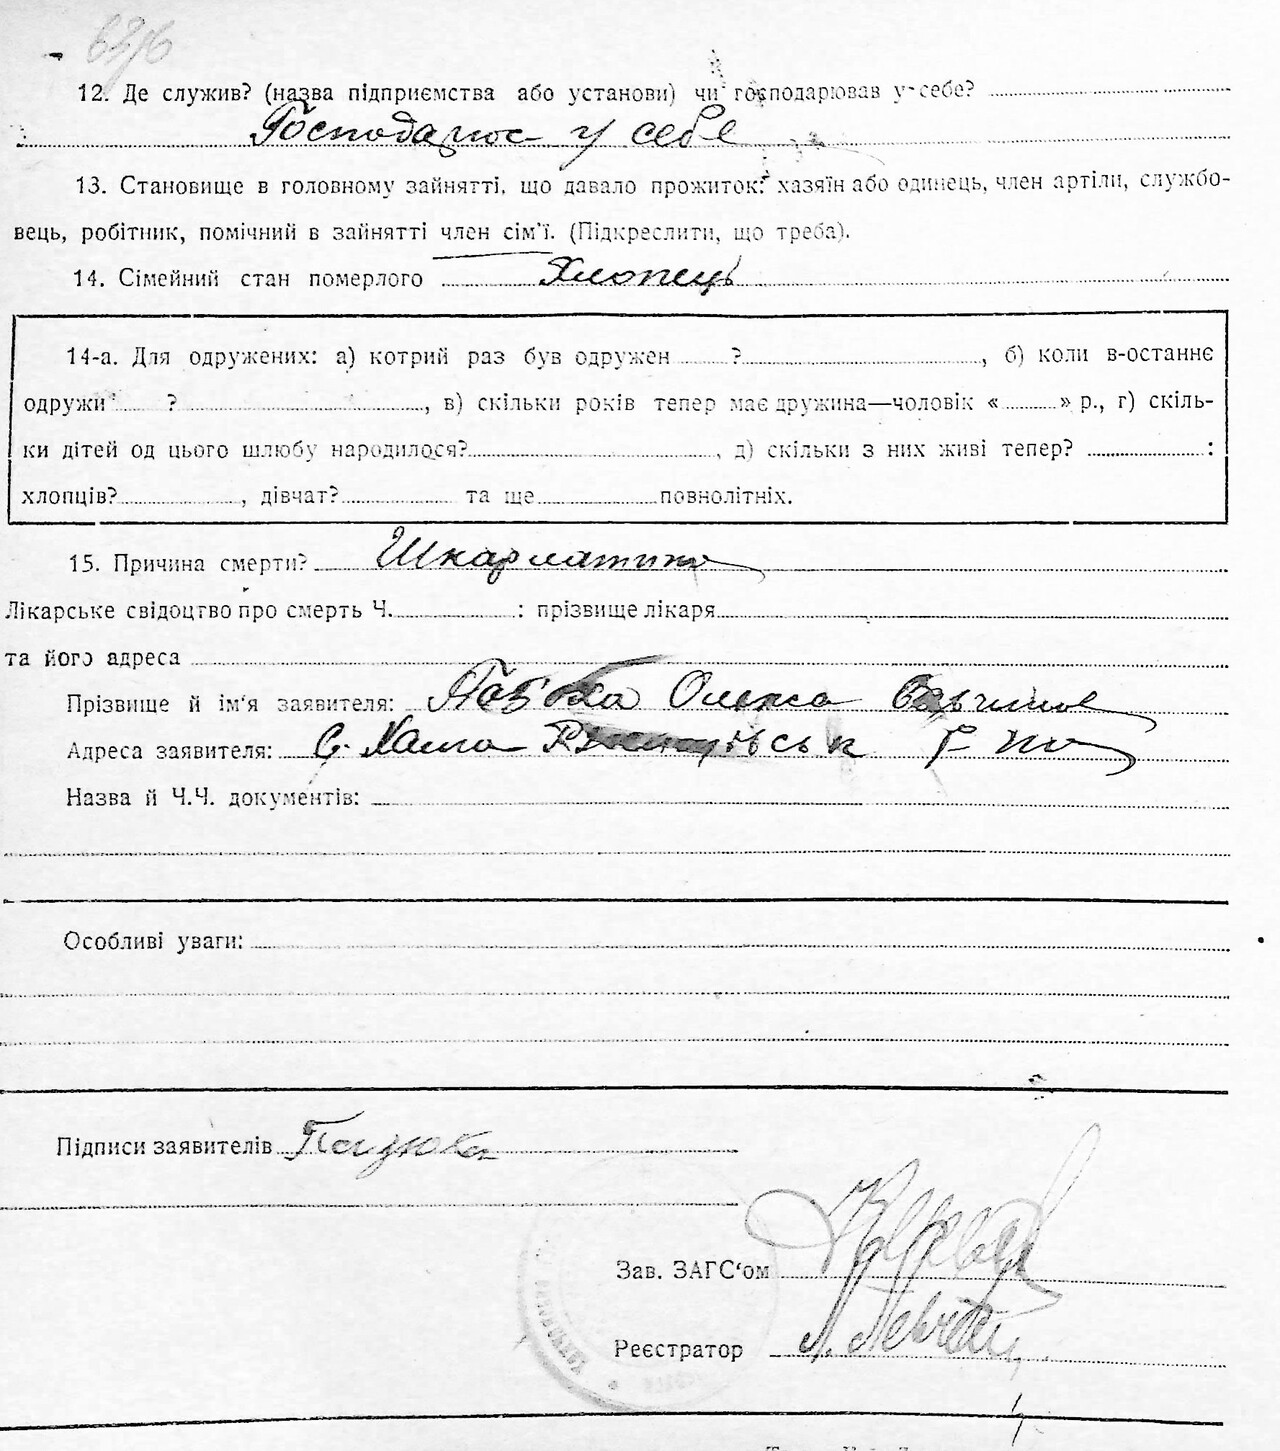 12. Де служив? (назва підприємства або установи) чи господарював у себе?
Господарює у себе
13. Становище в головному зайнятті, що давало прожиток: хазяїн або одинець, член артіли, службо-
вець, робітник, помічний в зайнятті член сім'ї. (Підкреслити, що треба).
14. Сімейний стан померлого Хлопець
14-а. Для одружених: а) котрий раз був одружен ?, б) коли в-останнє
одружи ?, в) скільки років тепер має дружина—чоловік « » р., г) скіль-
ки дітей од цього шлюбу народилося?, д) скільки з них живі тепер? :
хлопців?, дівчат? та ще повнолітніх.
15. Причина смерти? Шкарлатина
Лікарське свідоцтво про смерть Ч. : прізвище лікаря
та його адреса
Прізвище й ім'я заявителя: Олекса
Адреса заявителя: с.
Назва й Ч.Ч. документів:
Особливі уваги:
Підписи заявителів
Зав. ЗАГС'ом
Реєстратор